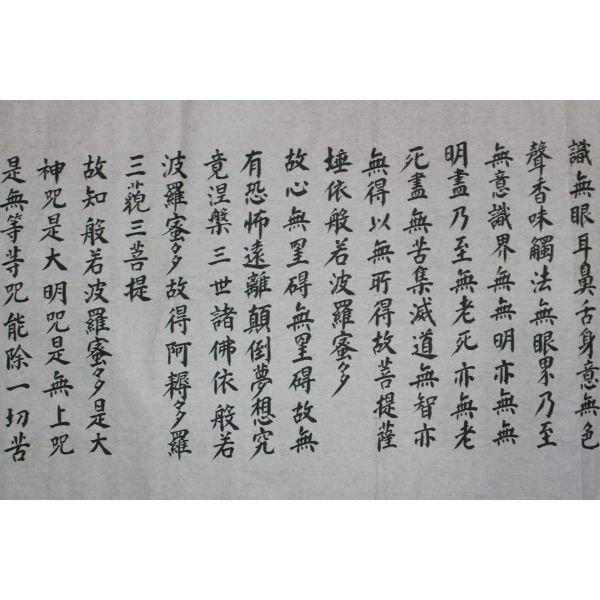 識無眼耳鼻舌身意無色
聲香味觸法無眼界乃至
無意識界無無明亦無無
明盡乃至無老死亦無老
死盡無苦集滅道無智亦
無得以無所得故菩提薩
埵依般若波羅蜜多
故心無罣碍無罣碍故無
有恐怖遠離顛倒夢想究
竟涅槃三世諸佛依般若
波羅蜜多故得阿耨多羅
三藐三菩提
故知般若波羅蜜多是大
神咒是大明咒是無上咒
是無等等咒能除一切苦